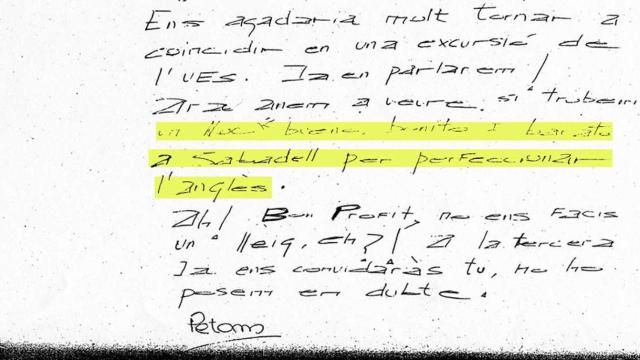 Ens agadaria molt tornar a
coincidir en una excursió de
l'UES. Ja en parlarem!
Ara anem a veure si trobem
un lloc bueno, bonito i barato
a Sabadell per perfeccionar
l'anglès.
Ah! Bon Profit, no ens facis
un lleig, eh?! A la tercera
Ja ens convidaràs tu, no ho
posem en dubte.
Petons